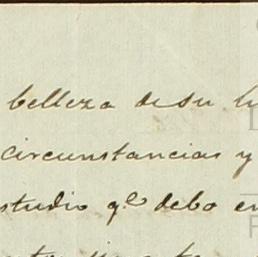 belleza de su
circunstancias y
studio q.e debo en